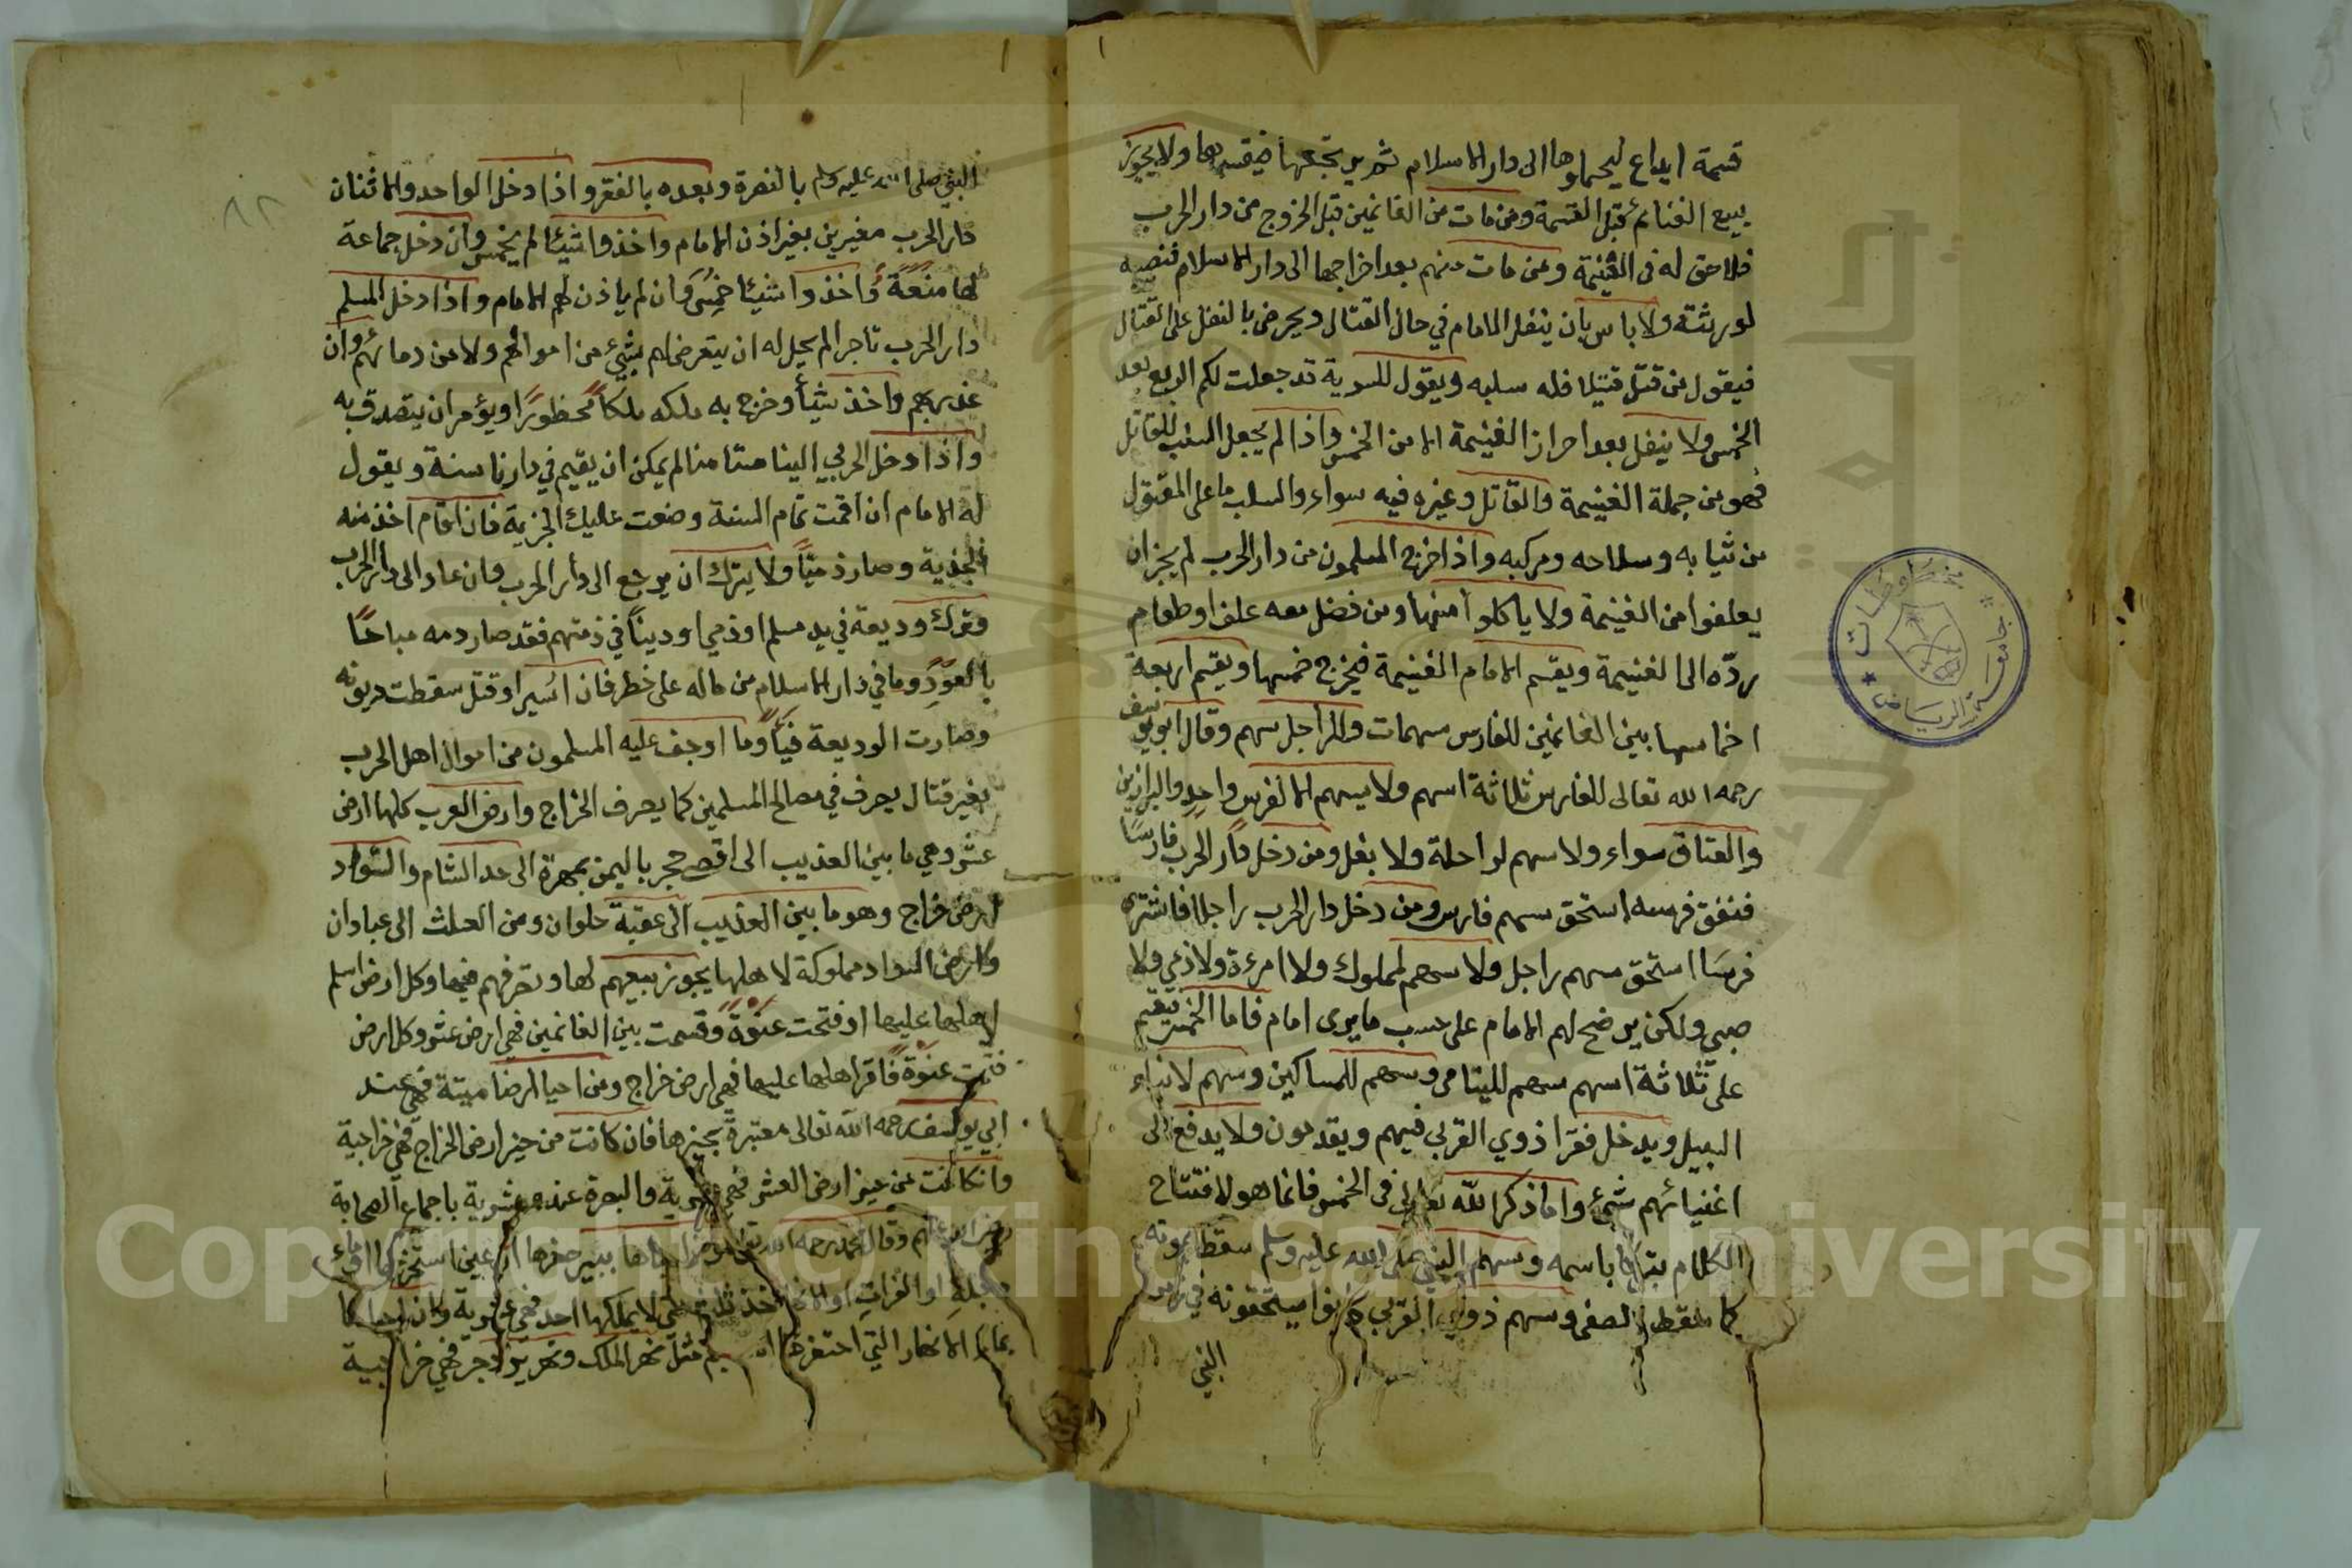 قسمة ايداع ليحملوها الى دار الاسلام ثم يرتجعها فيقسمها ولا يجوز
بيع الغنائم قبل القسمة ومن مات من الغانمين قبل الخروج من دار الحرب
فلا حق له فى الغنيمة ومن مات منهم بعد اخراجها الى دار الاسلام فنصيبه
لورثته ولا باس بان ينفل الامام في حال القتال ويحرض بالنفل على القتال
فيقول من قتل قتيلا فله سلبه ويقول للسرية قد جعلت لكم الربع بعد
الخمس ولا ينفل بعد احراز الغنيمة الا من الخمس واذا لم يجعل السلب للقاتل
فهو من جملة الغنيمة والقاتل وغيره فيه سواء والسلب ما على المقتول
من ثيابه وسلاحه ومركبه واذا خرج المسلمون من دار الحرب لم يجز ان
يعلفوا من الغنيمة ولا ياكلوا منها ومن فضل معه علف او طعام
ردّه الى الغنيمة ويقسم الامام الغنيمة فيخرج خمسها ويقسم اربعة
اخماسها بين الغانمين للفارس سهمان وللراجل سهم وقال ابو يوسف
رحمه الله تعالى للفارس ثلاثة اسهم ولا يسهم الا لفرس واحد والبراذين
والعتاق سواء ولا سهم لراحلة ولا بغل ومن دخل دار الحرب فارسًا
فنفق فرسه استحق سهم فارس ومن دخل دار الحرب راجلا فاشترى
فرسًا استحق سهم راجل ولا سهم لمملوك ولا امرءة ولا ذمي ولا
صبي ولكن يرضح لهم الامام على حسب ما يرى امام فاما الخمس فيقسم
على ثلاثة اسهم سهم لليتامى وسهم للمساكين وسهم لابناء
السبيل ويدخل فقرا ذوي القربى فيهم ويقدمون ولا يدفع الى
اغنيائهم شئ واما ذكر الله تعالى فى الخمس فانما هو لافتتاح
الكلام باسمه وسهم النبي صلى الله عليه وسلم سقط بموته
كما سقط الصفى وسهم ذوي القربى كانوا يستحقونه في زمن
النبي
النبي صلى الله عليه وسلم بالنصرة وبعده بالفقر واذا دخل الواحد والاثنان
دار الحرب مغيرين بغير اذن الامام واخذوا شيئا لم يخمس وان دخل جماعة
لها منعة واخذوا شيئا خمس وان لم ياذن لهم الامام واذا دخل المسلم
دار الحرب تاجرا لم يحل له ان يتعرض لهم بشئ من اموالهم ولا من دمائهم وان
غدر بهم واخذ شيأ وخرج به ملكه ملكاً محظورًا ويؤمر ان يتصدق به
واذا دخل الحربي الينا مستامنا لم يمكن ان يقيم في دارنا سنة ويقول
له الامام ان اقمت تمام السنة وضعت عليك الجزية فان اقام اخذ منه
الجزية وصار ذميّاً ولا يترك ان يرجع الى دار الحرب وان عاد الى دار الحرب
وترك وديعة في يد مسلم او ذمي او دينًا في ذمتهم فقد صار دمه مباحًا
بالعود وما في دار الاسلام من ماله على خطر فان اسر او قتل سقطت ديونه
وصارت الوديعة فيأً وما اوجف عليه المسلمون من اموال اهل الحرب
بغير قتال يصرف في مصالح المسلمين كما يصرف الخراج وارض العرب كلها ارض
عشر وهي ما بين العذيب الى اقصى حجر باليمن بمهرة الى حد الشام والسواد
ارض خراج وهو ما بين العذيب الى عقبة حلوان ومن العلث الى عبادان
وارض السواد مملوكة لاهلها يجوز بيعهم لها وتصرفهم فيها وكل ارض اسلم
اهلها عليها او فتحت عنوة وقسمت بين الغانمين فهي ارض عشر وكل ارض
فتحت عنوة فاقر اهلها عليها فهي ارض خراج ومن احيا ارضا ميتة فهي عند
ابي يوسف رحمه الله تعالى معتبرة بحيزها فان كانت من حيز ارض الخراج فهي خراجية
وان كانت من حيز ارض العشر فهي عشرية والبصرة عنده عشرية باجماع الصحابة
وقال محمد رحمه الله ببير حفرها او عين استخرجها او ماء
دجلة او الفرات لا يملكها احد فهي عشرية وان احياها
بماء الانهار التي احتفرها مثل نهر الملك ونهر يزدجرد فهي خراجية
جامعة الرياض
مخطوطات
٨٢
Copyright © King Saud University